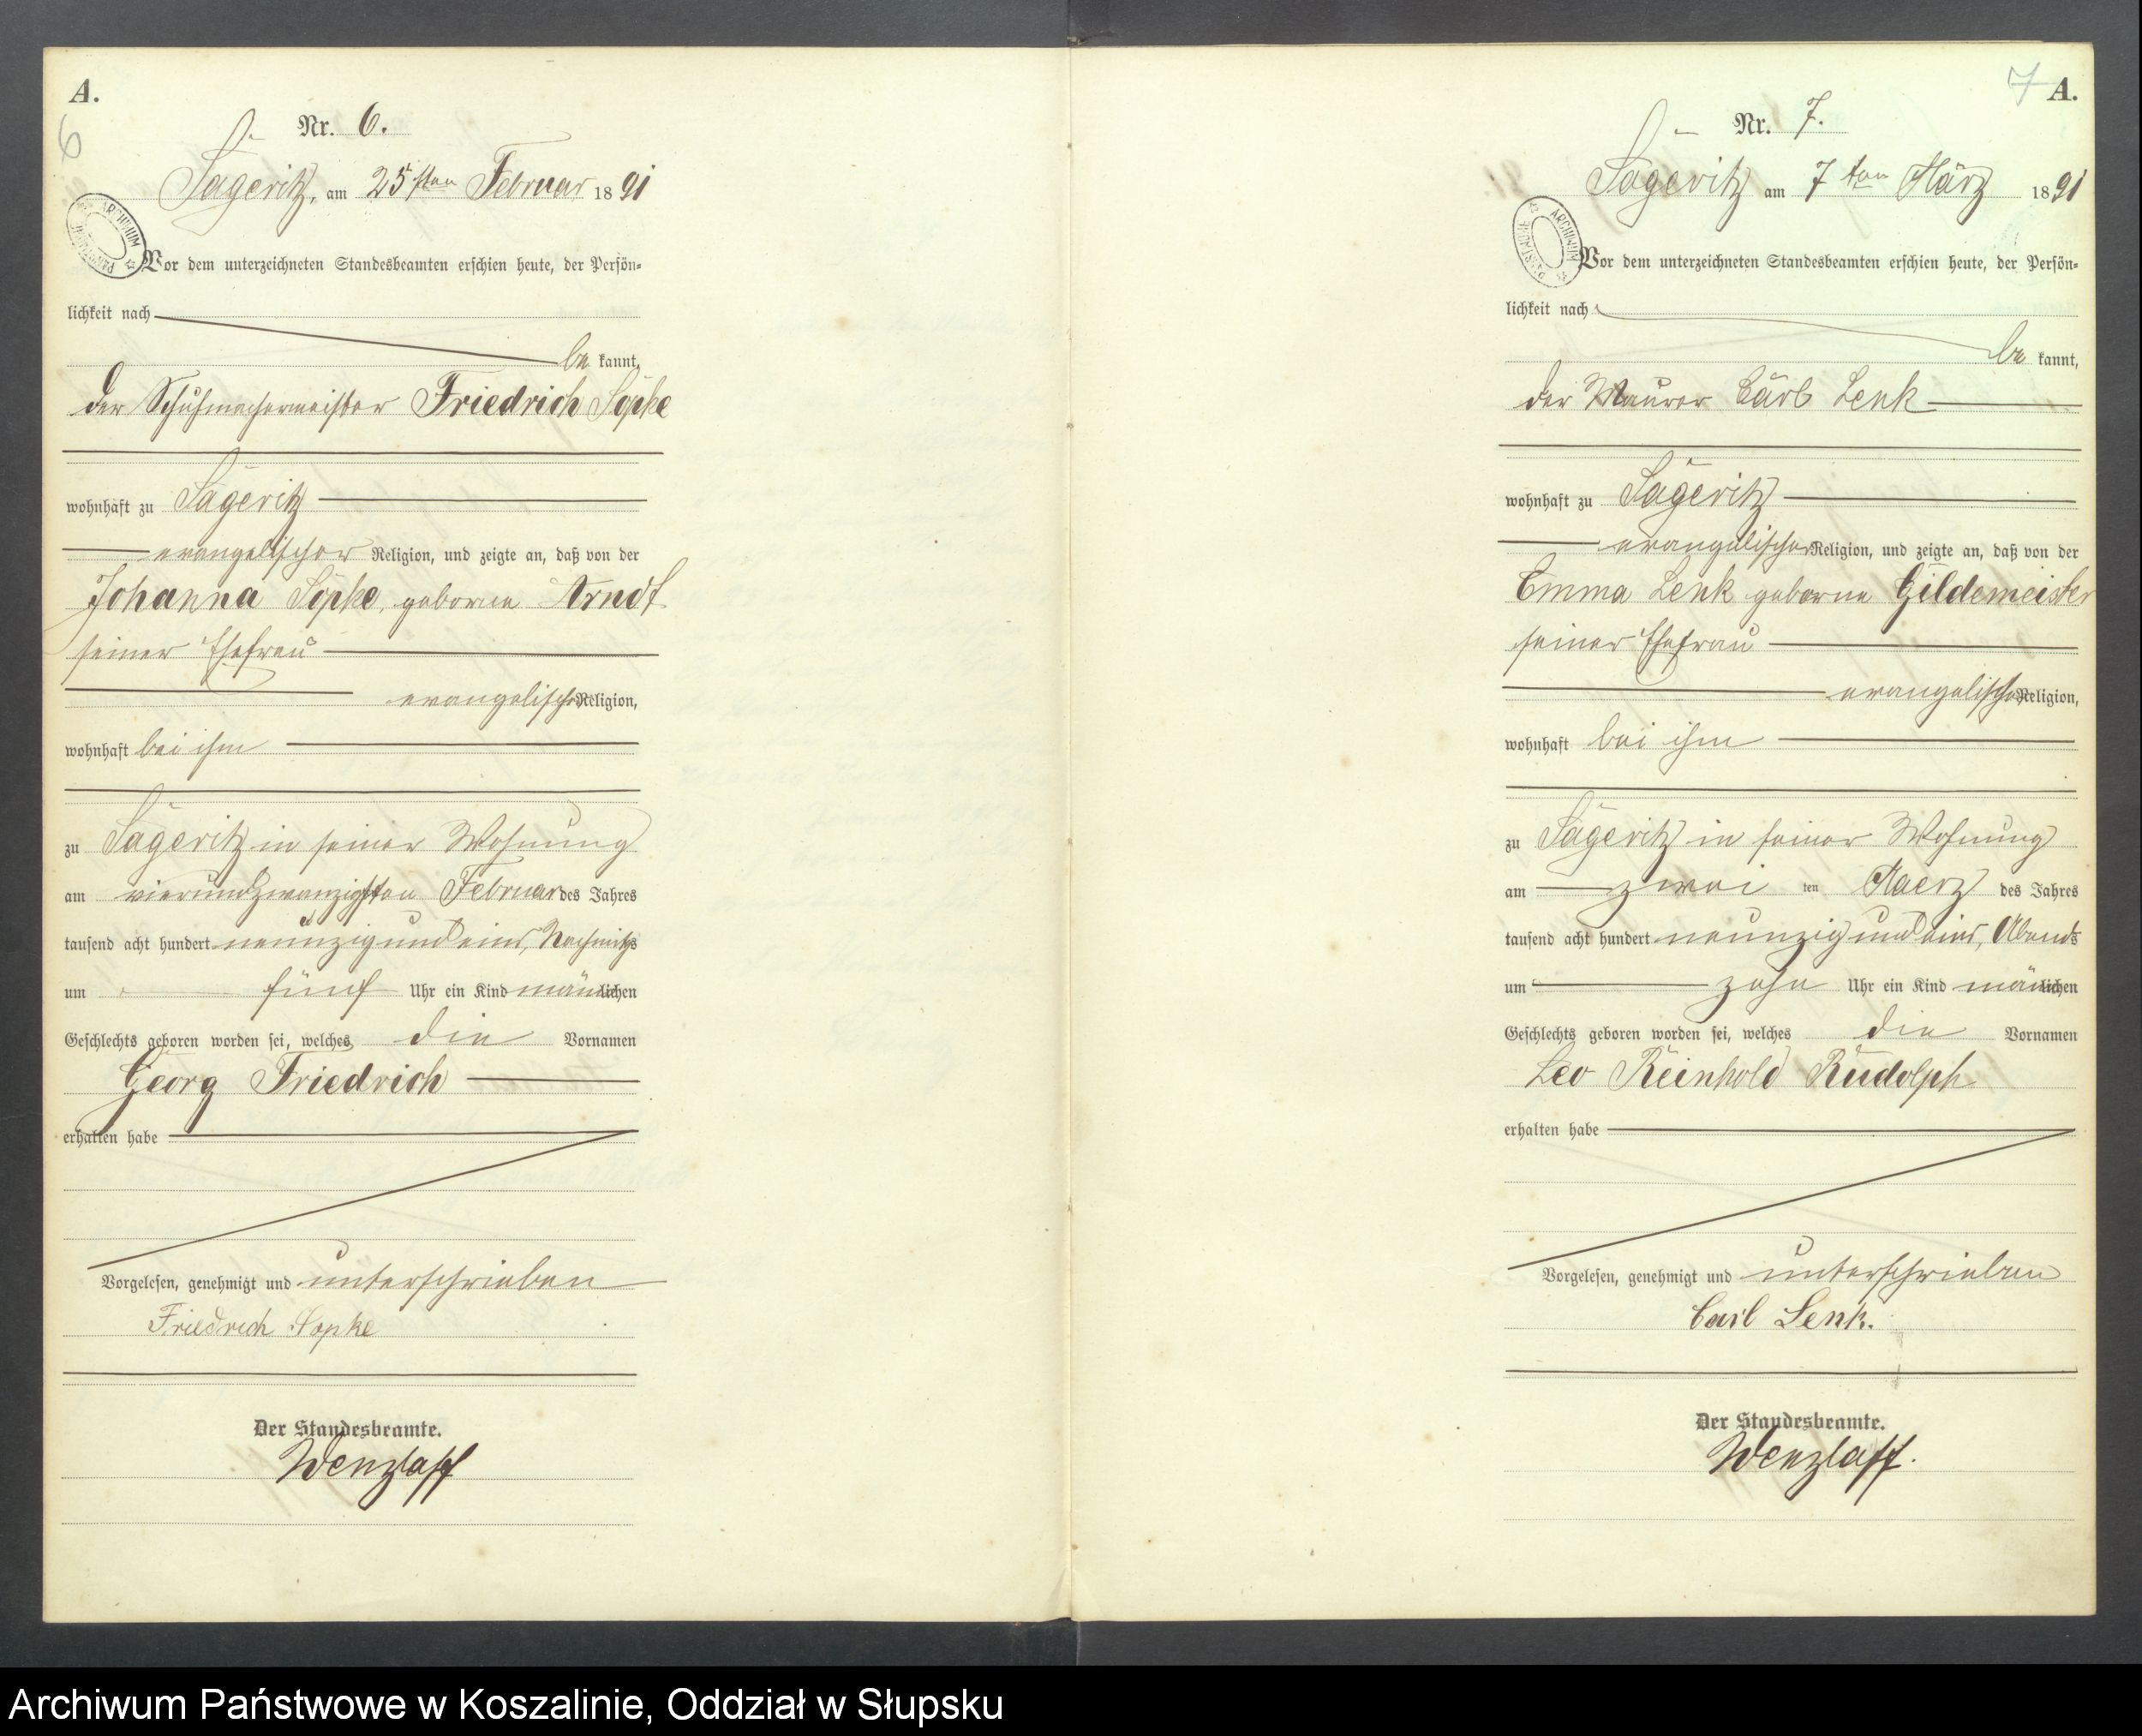 A.
6
Nr. 6.
Sageritz, am 25sten Februar 1891
ARCHIWUM PAŃSTWOWE
Vor dem unterzeichneten Standesbeamten erschien heute, der Persön=
lichkeit nach
be kannt,
der Schuhmachermeister Friedrich Sopke
wohnhaft zu Sageritz
evangelischer Religion, und zeigte an, daß von der
Johanna Sopke, geborne Arndt
seiner Ehefrau
evangelischer Religion,
wohnhaft bei ihm
zu Sageritz in seiner Wohnung
am vierundzwanzigsten Februar des Jahres
tausend acht hundert neunzig und eins, Nachmittgs
um fünf Uhr ein Kind männlichen
Geschlechts geboren worden sei, welches die Vornamen
Georg Friedrich
erhalten habe
Vorgelesen, genehmigt und unterschrieben
Friedrich Sopke
Der Standesbeamte.
Wenzlaff
7 A.
Nr. 7.
Sageritz am 7ten März 1891
ARCHIWUM PAŃSTWOWE
Vor dem unterzeichneten Standesbeamten erschien heute, der Persön=
lichkeit nach
be kannt,
der Maurer Carl Lenk
wohnhaft zu Sageritz
evangelischer Religion, und zeigte an, daß von der
Emma Lenk geborne Gildemeister
seiner Ehefrau
evangelischer Religion,
wohnhaft bei ihm
zu Sageritz in seiner Wohnung
am zwei ten Maerz des Jahres
tausend acht hundert neunzig und eins, Abends
um zehn Uhr ein Kind männlichen
Geschlechts geboren worden sei, welches die Vornamen
Leo Reinhold Rudolph
erhalten habe
Vorgelesen, genehmigt und unterschrieben
Carl Lenk.
Der Standesbeamte.
Wenzlaff.
Archiwum Państwowe w Koszalinie, Oddział w Słupsku